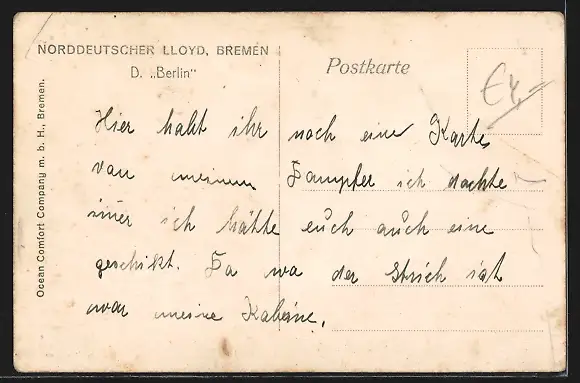 NORDDEUTSCHER LLOYD, BREMEN
D. „Berlin“
Postkarte
€4,-
Hier habt ihr noch eine Karte
von meinem Dampfer ich dachte
imer ich hätte euch auch eine
geschikt. Da wo der Strich ist
war meine Kabine.
Ocean Comfort Company m. b. H., Bremen.